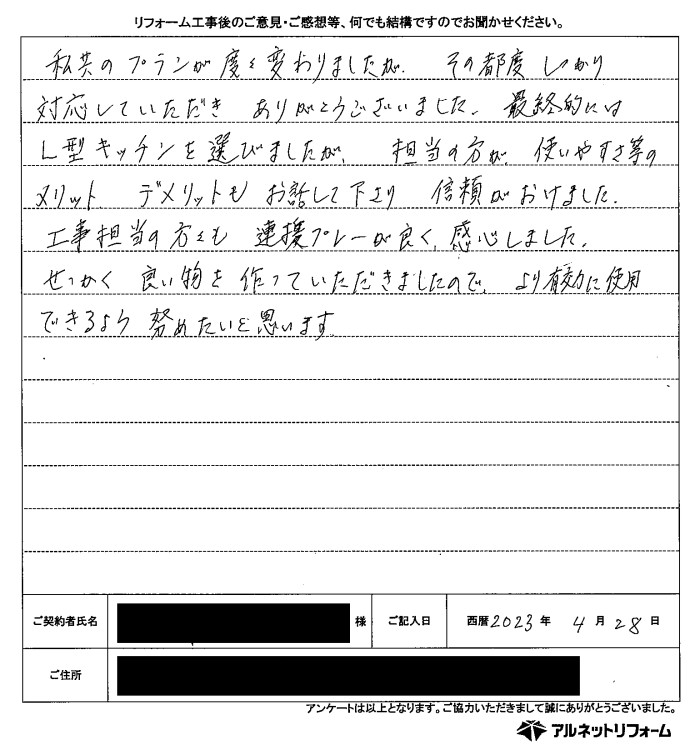 リフォーム工事後のご意見・ご感想等、何でも結構ですのでお聞かせください。
私共のプランが度々変わりましたが、その都度しっかり
対応していただきありがとうございました。最終的には
L型キッチンを選びましたが、担当の方が、使いやすさ等の
メリット、デメリットもお話して下さり信頼がおけました。
工事担当の方々も連携プレーが良く、感心しました。
せっかく良い物を作っていただきましたので、より有効に使用
できるよう努めたいと思います
ご契約者氏名 様 ご記入日 西暦2023年 4月28日
ご住所
アンケートは以上となります。ご協力いただきまして誠にありがとうございました。
アルネットリフォーム